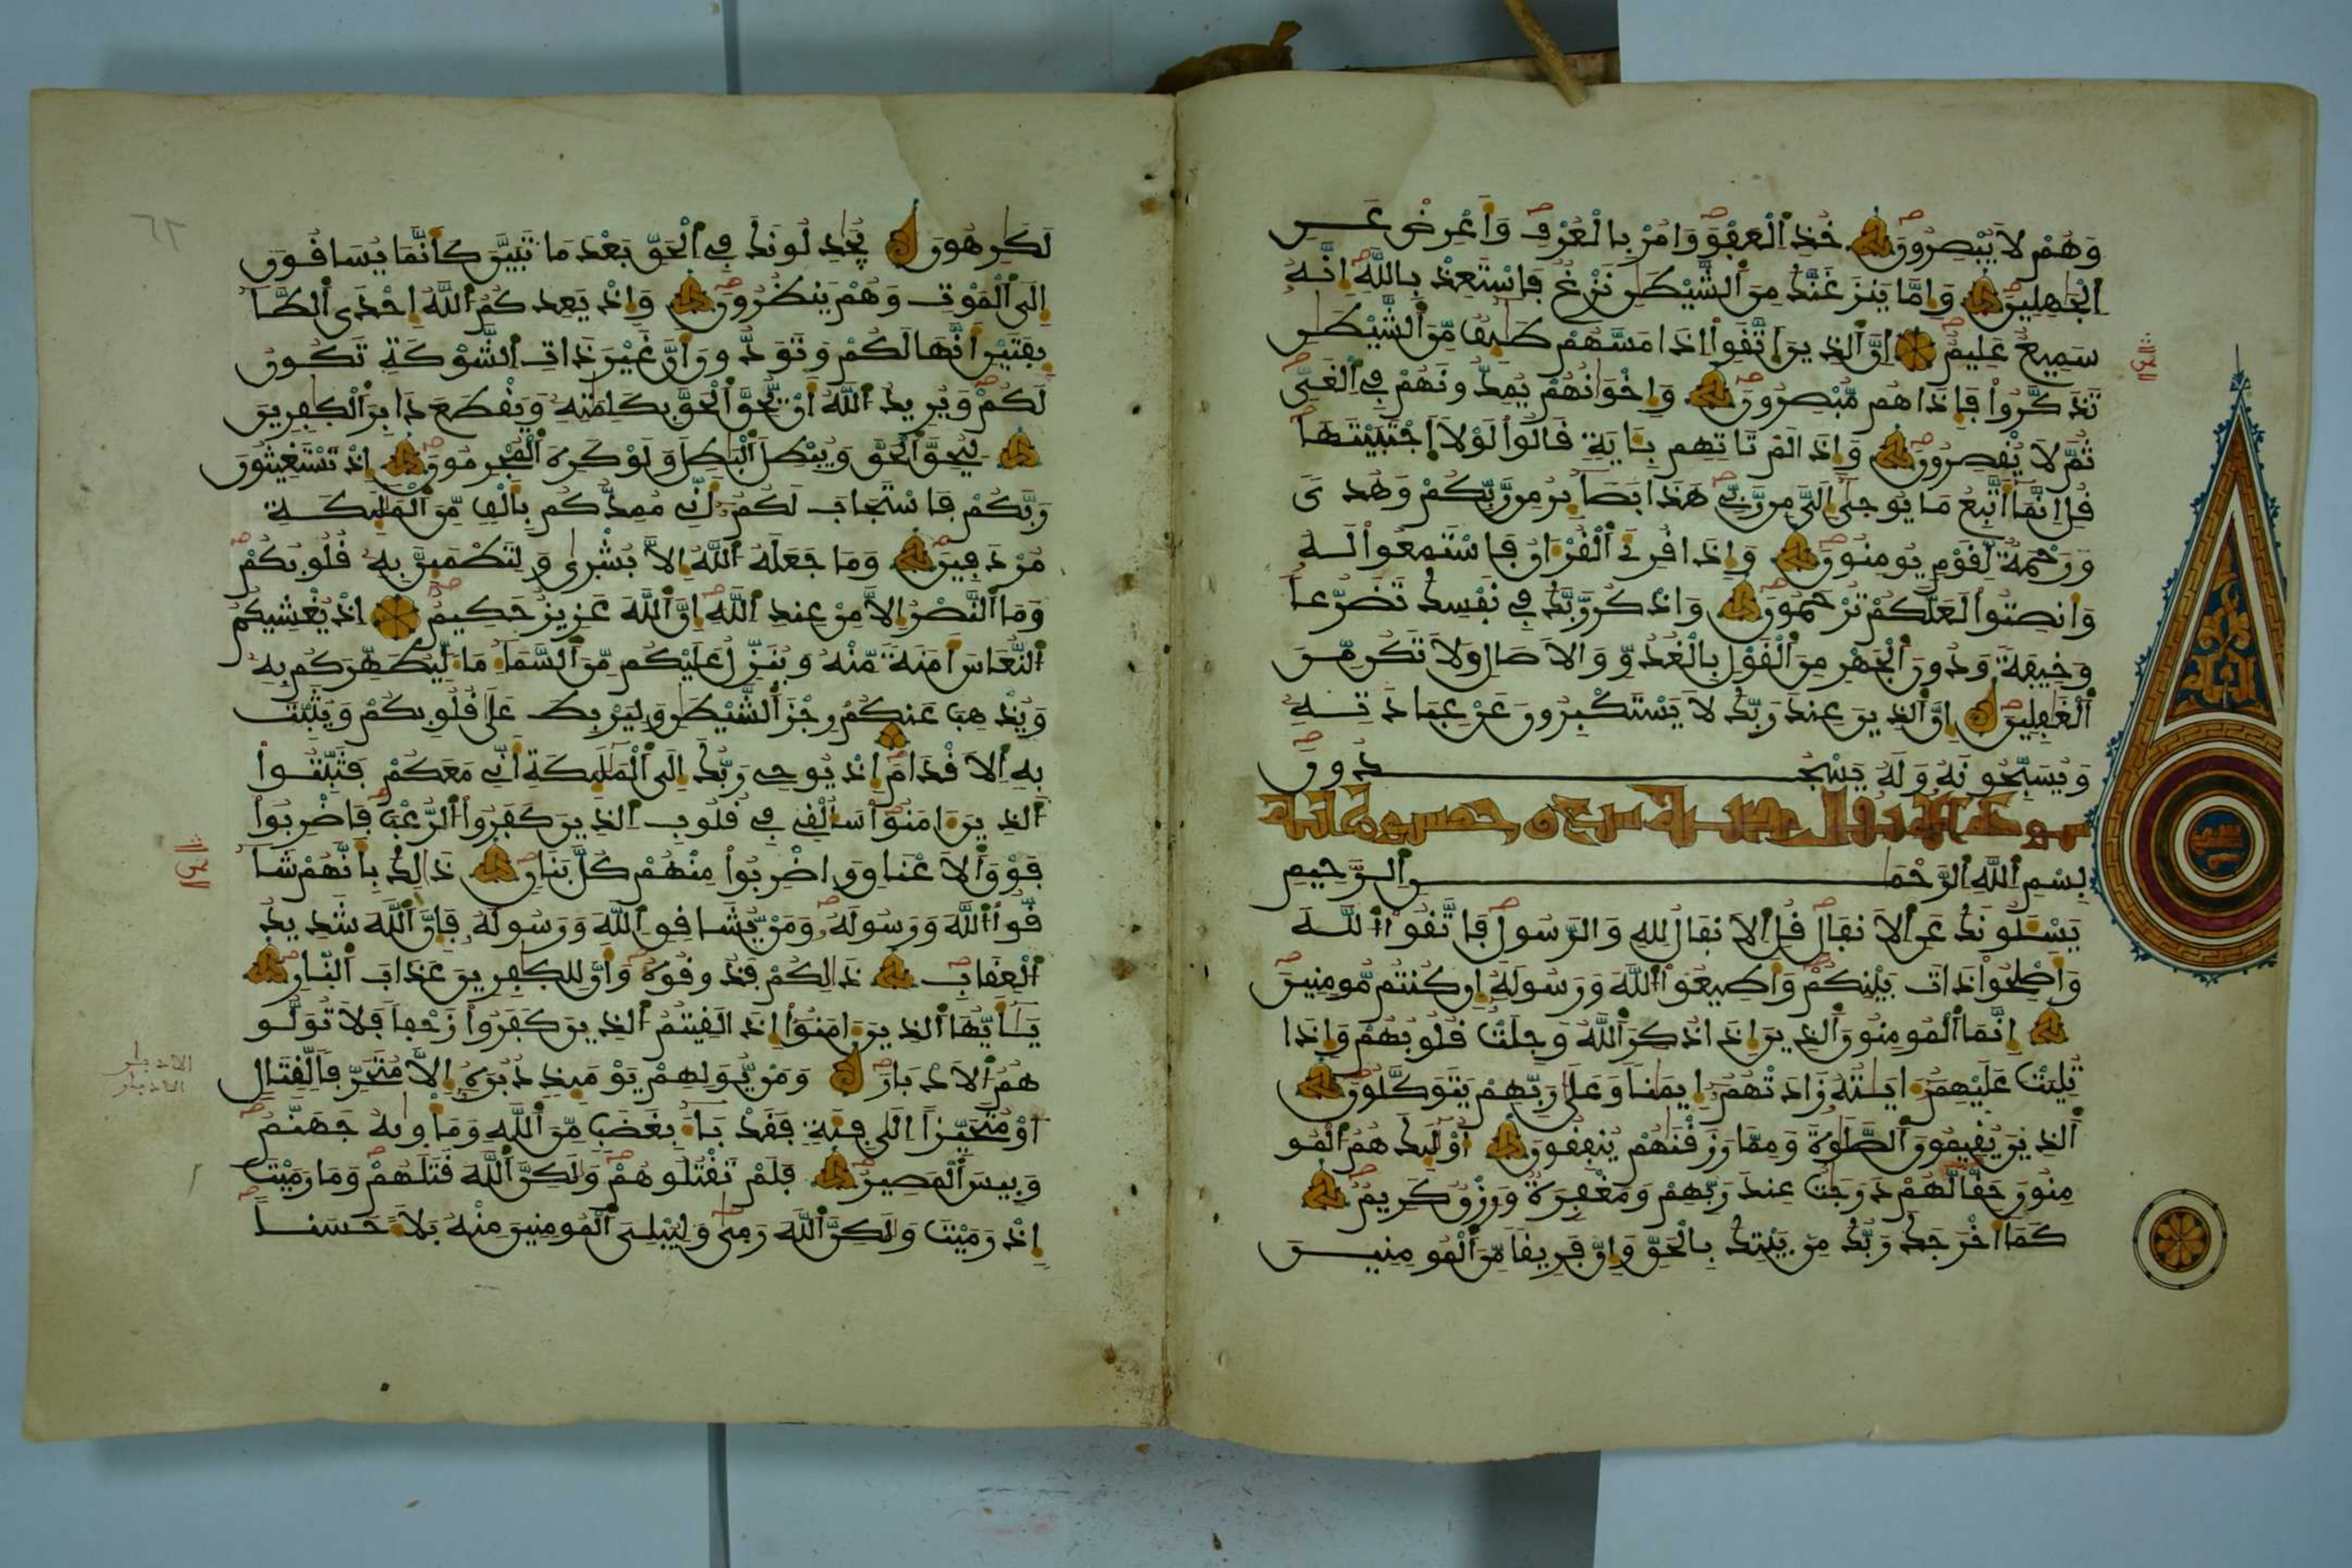 وَهُمْ لَا يُبْصِرُونَ خُذِ الْعَفْوَ وَامُرْ بِالْعُرْفِ وَأَعْرِضْ عَنِ
الْجَٰهِلِينَ وَإِمَّا يَنزَغَنَّكَ مِنَ الشَّيْطَٰنِ نَزْغٌ فَاسْتَعِذْ بِاللَّهِ إِنَّهُ
سَمِيعٌ عَلِيمٌ إِنَّ الَّذِينَ اتَّقَوْا إِذَا مَسَّهُمْ طَٰٓئِفٌ مِّنَ الشَّيْطَٰنِ
تَذَكَّرُوا فَإِذَا هُم مُّبْصِرُونَ وَإِخْوَٰنُهُمْ يُمِدُّونَهُمْ فِي الْغَيِّ
ثُمَّ لَا يُقْصِرُونَ وَإِذَا لَمْ تَاتِهِم بِـَٔايَةٍ قَالُوا لَوْلَا اجْتَبَيْتَهَا
قُلِ انَّمَا أَتَّبِعُ مَا يُوحَىٰ إِلَيَّ مِن رَّبِّي هَٰذَا بَصَآئِرُ مِن رَّبِّكُمْ وَهُدًى
وَرَحْمَةٌ لِّقَوْمٍ يُومِنُونَ وَإِذَا قُرِئَ الْقُرْءَانُ فَاسْتَمِعُوا لَهُ
وَأَنصِتُوا لَعَلَّكُمْ تُرْحَمُونَ وَاذْكُر رَّبَّكَ فِي نَفْسِكَ تَضَرُّعًا
وَخِيفَةً وَدُونَ الْجَهْرِ مِنَ الْقَوْلِ بِالْغُدُوِّ وَالْآصَالِ وَلَا تَكُن مِّنَ
الْغَٰفِلِينَ إِنَّ الَّذِينَ عِندَ رَبِّكَ لَا يَسْتَكْبِرُونَ عَنْ عِبَادَتِهِ
وَيُسَبِّحُونَهُ وَلَهُ يَسْجُدُونَ
بِسْمِ اللَّهِ الرَّحْمَٰنِ الرَّحِيمِ
يَسْـَٔلُونَكَ عَنِ الْأَنفَالِ قُلِ الْأَنفَالُ لِلَّهِ وَالرَّسُولِ فَاتَّقُوا اللَّهَ
وَأَصْلِحُوا ذَاتَ بَيْنِكُمْ وَأَطِيعُوا اللَّهَ وَرَسُولَهُ إِن كُنتُم مُّومِنِينَ
إِنَّمَا الْمُومِنُونَ الَّذِينَ إِذَا ذُكِرَ اللَّهُ وَجِلَتْ قُلُوبُهُمْ وَإِذَا
تُلِيَتْ عَلَيْهِمُ ءَايَٰتُهُ زَادَتْهُمُ إِيمَٰنًا وَعَلَىٰ رَبِّهِمْ يَتَوَكَّلُونَ
الَّذِينَ يُقِيمُونَ الصَّلَوٰةَ وَمِمَّا رَزَقْنَٰهُمْ يُنفِقُونَ أُوْلَٰٓئِكَ هُمُ الْمُو
مِنُونَ حَقًّا لَّهُمْ دَرَجَٰتٌ عِندَ رَبِّهِمْ وَمَغْفِرَةٌ وَرِزْقٌ كَرِيمٌ
كَمَا أَخْرَجَكَ رَبُّكَ مِن بَيْتِكَ بِالْحَقِّ وَإِنَّ فَرِيقًا مِّنَ الْمُومِنِينَ
لَكَٰرِهُونَ يُجَٰدِلُونَكَ فِي الْحَقِّ بَعْدَ مَا تَبَيَّنَ كَأَنَّمَا يُسَاقُونَ
إِلَى الْمَوْتِ وَهُمْ يَنظُرُونَ وَإِذْ يَعِدُكُمُ اللَّهُ إِحْدَى الطَّآ
ئِفَتَيْنِ أَنَّهَا لَكُمْ وَتَوَدُّونَ أَنَّ غَيْرَ ذَاتِ الشَّوْكَةِ تَكُونُ
لَكُمْ وَيُرِيدُ اللَّهُ أَنْ يُّحِقَّ الْحَقَّ بِكَلِمَٰتِهِ وَيَقْطَعَ دَابِرَ الْكَٰفِرِينَ
لِيُحِقَّ الْحَقَّ وَيُبْطِلَ الْبَٰطِلَ وَلَوْ كَرِهَ الْمُجْرِمُونَ إِذْ تَسْتَغِيثُونَ
رَبَّكُمْ فَاسْتَجَابَ لَكُمُ أَنِّي مُمِدُّكُم بِأَلْفٍ مِّنَ الْمَلَٰٓئِكَةِ
مُرْدَفِينَ وَمَا جَعَلَهُ اللَّهُ إِلَّا بُشْرَىٰ وَلِتَطْمَئِنَّ بِهِ قُلُوبُكُمْ
وَمَا النَّصْرُ إِلَّا مِنْ عِندِ اللَّهِ إِنَّ اللَّهَ عَزِيزٌ حَكِيمٌ إِذْ يُغْشِيكُمُ
النُّعَاسَ أَمَنَةً مِّنْهُ وَيُنَزِّلُ عَلَيْكُم مِّنَ السَّمَآءِ مَآءً لِّيُطَهِّرَكُم بِهِ
وَيُذْهِبَ عَنكُمْ رِجْزَ الشَّيْطَٰنِ وَلِيَرْبِطَ عَلَىٰ قُلُوبِكُمْ وَيُثَبِّتَ
بِهِ الْأَقْدَامَ إِذْ يُوحِي رَبُّكَ إِلَى الْمَلَٰٓئِكَةِ أَنِّي مَعَكُمْ فَثَبِّتُوا
الَّذِينَ ءَامَنُوا سَأُلْقِي فِي قُلُوبِ الَّذِينَ كَفَرُوا الرُّعْبَ فَاضْرِبُوا
فَوْقَ الْأَعْنَاقِ وَاضْرِبُوا مِنْهُمْ كُلَّ بَنَانٍ ذَٰلِكَ بِأَنَّهُمْ شَآ
قُّوا اللَّهَ وَرَسُولَهُ وَمَنْ يُّشَاقِقِ اللَّهَ وَرَسُولَهُ فَإِنَّ اللَّهَ شَدِيدُ
الْعِقَابِ ذَٰلِكُمْ فَذُوقُوهُ وَأَنَّ لِلْكَٰفِرِينَ عَذَابَ النَّارِ
يَٰٓأَيُّهَا الَّذِينَ ءَامَنُوا إِذَا لَقِيتُمُ الَّذِينَ كَفَرُوا زَحْفًا فَلَا تُوَلُّو
هُمُ الْأَدْبَارَ وَمَنْ يُّوَلِّهِمْ يَوْمَئِذٍ دُبُرَهُ إِلَّا مُتَحَرِّفًا لِّقِتَالٍ
أَوْ مُتَحَيِّزًا إِلَىٰ فِئَةٍ فَقَدْ بَآءَ بِغَضَبٍ مِّنَ اللَّهِ وَمَأْوَىٰهُ جَهَنَّمُ
وَبِيسَ الْمَصِيرُ فَلَمْ تَقْتُلُوهُمْ وَلَٰكِنَّ اللَّهَ قَتَلَهُمْ وَمَا رَمَيْتَ
إِذْ رَمَيْتَ وَلَٰكِنَّ اللَّهَ رَمَىٰ وَلِيُبْلِيَ الْمُومِنِينَ مِنْهُ بَلَآءً حَسَنًا